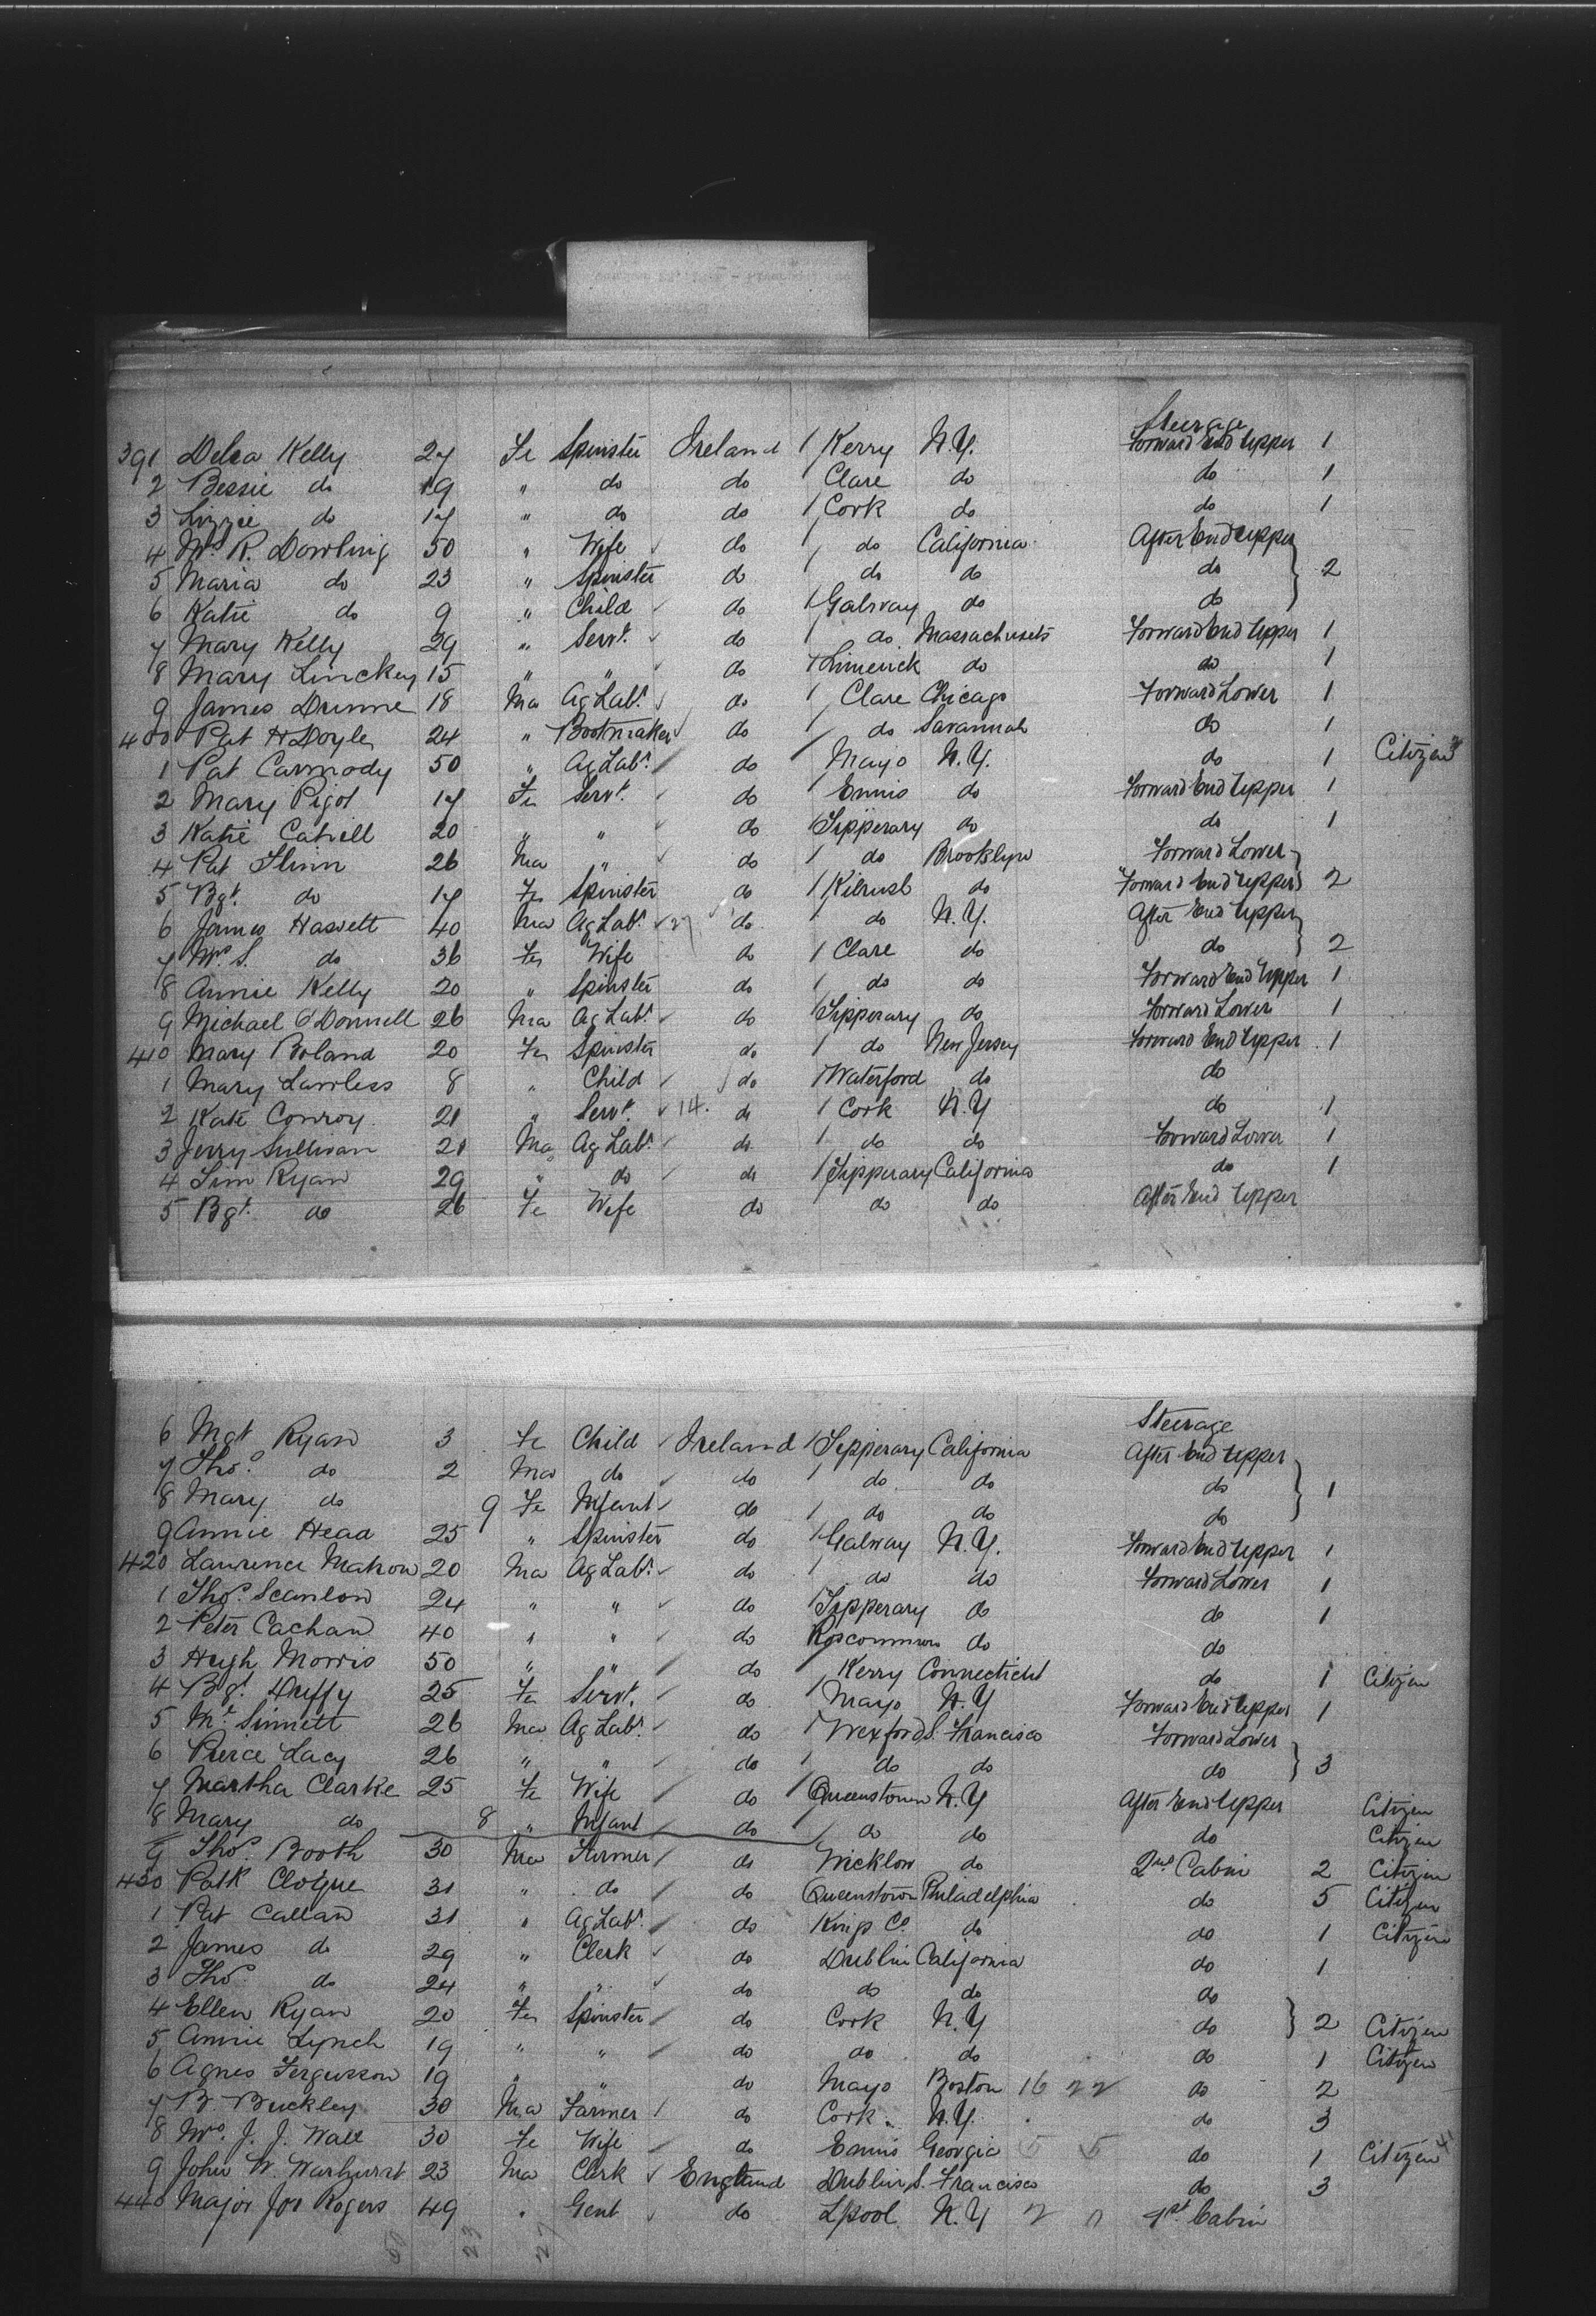 Steerage
391 Delia Kelly 27 Fe Spinster Ireland 1 Kerry N.Y. Forward End Upper 1
2 Bessie do 19 " do do Clare do do 1
3 Lizzie do 17 " do do 1 Cork do do 1
4 Mrs R. Dowling 50 " Wife do 1 do California After End Upper
5 Maria do 23 " Spinster do 1 do do do 2
6 Katie do 9 " Child do 1 Galway do do
7 Mary Kelly 29 " Servt. do 1 do Massachusets Forward End Upper 1
8 Mary Linckey 15 " " do 1 Limerick do do 1
9 James Dunne 18 Ma Ag Labr. do 1 Clare Chicago Forward Lower 1
400 Pat H Doyle 24 " Bootmaker do 1 do Savannah do 1
1 Pat Carmody 50 " Ag Labr. do 1 Mayo N.Y. do 1 Citizen
2 Mary Pigot 17 Fe Servt. do 1 Ennis do Forward End Upper 1
3 Katie Cahill 20 " " do 1 Tipperary do do 1
4 Pat Flinn 26 Ma " do 1 do Brooklyn Forward Lower
5 Bgt. do 17 Fe Spinster do 1 Kilrush do Forward End Upper 2
6 James Hassett 40 Ma Ag Labr. 27 do 1 do N.Y. After End Upper
7 Mrs S. do 36 Fe Wife do 1 Clare do do 2
8 Annie Kelly 20 " Spinster do 1 do do Forward End Upper 1
9 Michael O'Donnell 26 Ma Ag Labr. do 1 Tipperary do Forward Lower 1
410 Mary Boland 20 Fe Spinster do 1 do New Jersey Forward End Upper 1
1 Mary Lawless 8 " Child do 1 Waterford do do
2 Kate Conroy 21 " Servt. 14. do 1 Cork N.Y do 1
3 Jerry Sullivan 21 Ma Ag Labr. do 1 do do Forward Lower 1
4 Tim Ryan 29 " do do 1 Tipperary California do 1
5 Bgt. do 26 Fe Wife do do do After End Upper
Steerage
6 Mgt Ryan 3 Fe Child Ireland 1 Tipperary California After End Upper
7 Thos. do 2 Ma do do 1 do do do 1
8 Mary do 9 Fe Infant do 1 do do do
9 Annie Head 25 " Spinster do 1 Galway N.Y. Forward End Upper 1
420 Laurence Mahon 20 Ma Ag Labr. do 1 do do Forward Lower 1
1 Thos. Scanlon 24 " " do 1 Tipperary do do 1
2 Peter Cachan 40 " " do Roscommon do do
3 Hugh Morris 50 " " do 1 Kerry Connecticut do 1 Citizen
4 Bgt. Duffy 25 Fe Servt. do 1 Mayo N.Y Forward End Upper 1
5 Mr. Sinnett 26 Ma Ag Labr. do 1 Wexford S. Francisco Forward Lower
6 Pierce Lacy 26 " " do 1 do do do 3
7 Martha Clarke 25 Fe Wife do 1 Queenstown N.Y After End Upper Citizen
8 Mary do 8 " Infant do 1 do do do Citizen
9 Thos. Booth 30 Ma Farmer do Wicklow do 2nd Cabin 2 Citizen
430 Patk Clogue 31 " do do Queenstown Philadelphia do 5 Citizen
1 Pat Callan 31 " Ag Labr. do Kings Co. do do 1 Citizen
2 James do 29 " Clerk do Dublin California do 1
3 Thos. do 24 " " do do do do
4 Ellen Ryan 20 Fe Spinster do Cork N.Y do 2 Citizen
5 Annie Lynch 19 " " do do do do 1 Citizen
6 Agnes Fergusson 19 " " do Mayo Boston 16 22 do 2
7 B. Buckley 30 Ma Farmer do Cork N.Y. do 3
8 Mrs. J. J. Wall 30 Fe Wife do Ennis Georgia 5 5 do 1 Citizen
9 John W. Warhurst 23 Ma Clerk England Dublin S. Francisco do 3
440 Major Jos Rogers 49 " Gent do Lpool N.Y 2 1st Cabin
23 27